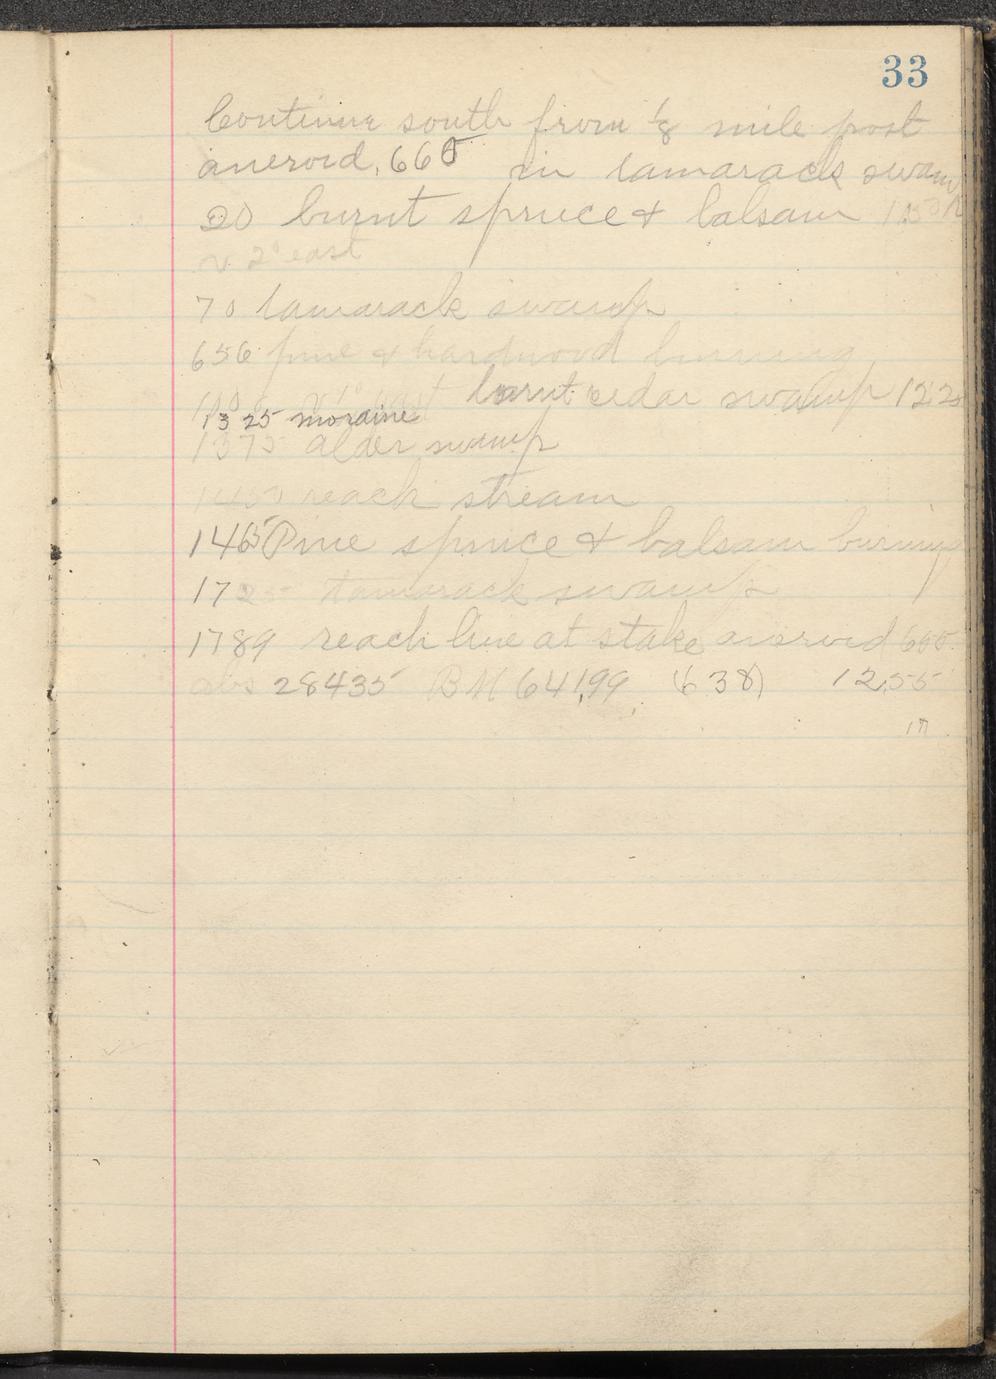 33
Continue south from 1/8 mile post
aneroid, 665 in tamarack swamp
20 burnt spruce & balsam
v. 2° east
70 tamarack swamp
656 pine & hardwood burning
1° east burnt cedar swamp 1225
1325 moraine
1375 alder swamp
1450 reach stream
1465 Pine spruce & balsam burning
1725 tamarack swamp
1789 reach line at stake aneroid 660
obs 28435 BM 641.99 (638) 12,55
17